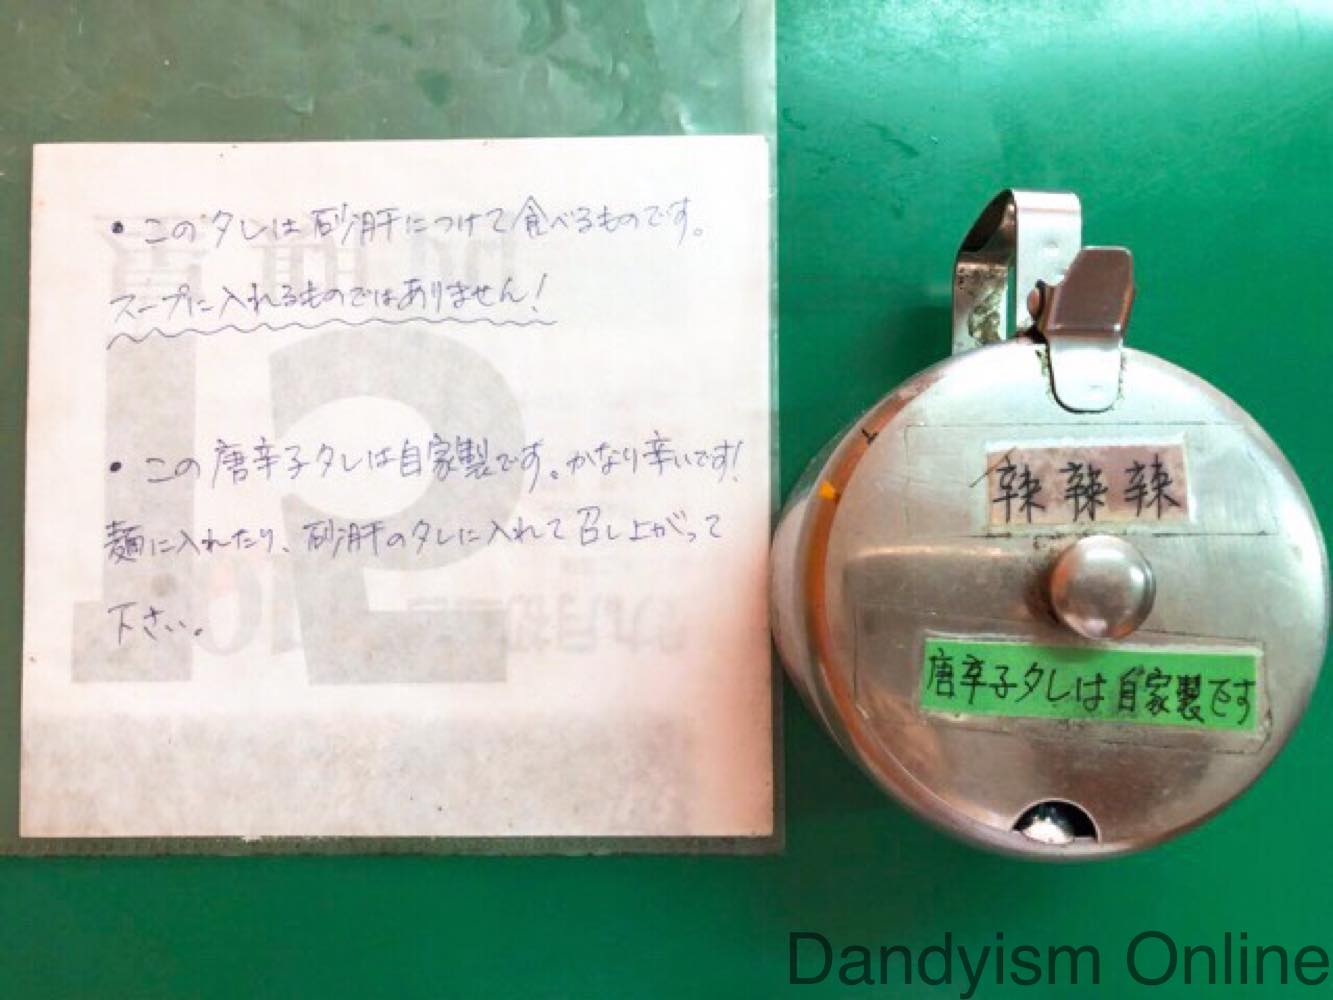 ・このタレは砂肝につけて食べるものです。
スープに入れるものではありません!
・この唐辛子タレは自家製です。かなり辛いです!
麺に入れたり、砂肝のタレに入れて召し上がって
下さい。
辣 辣 辣
唐辛子タレは自家製です
Dandyism Online